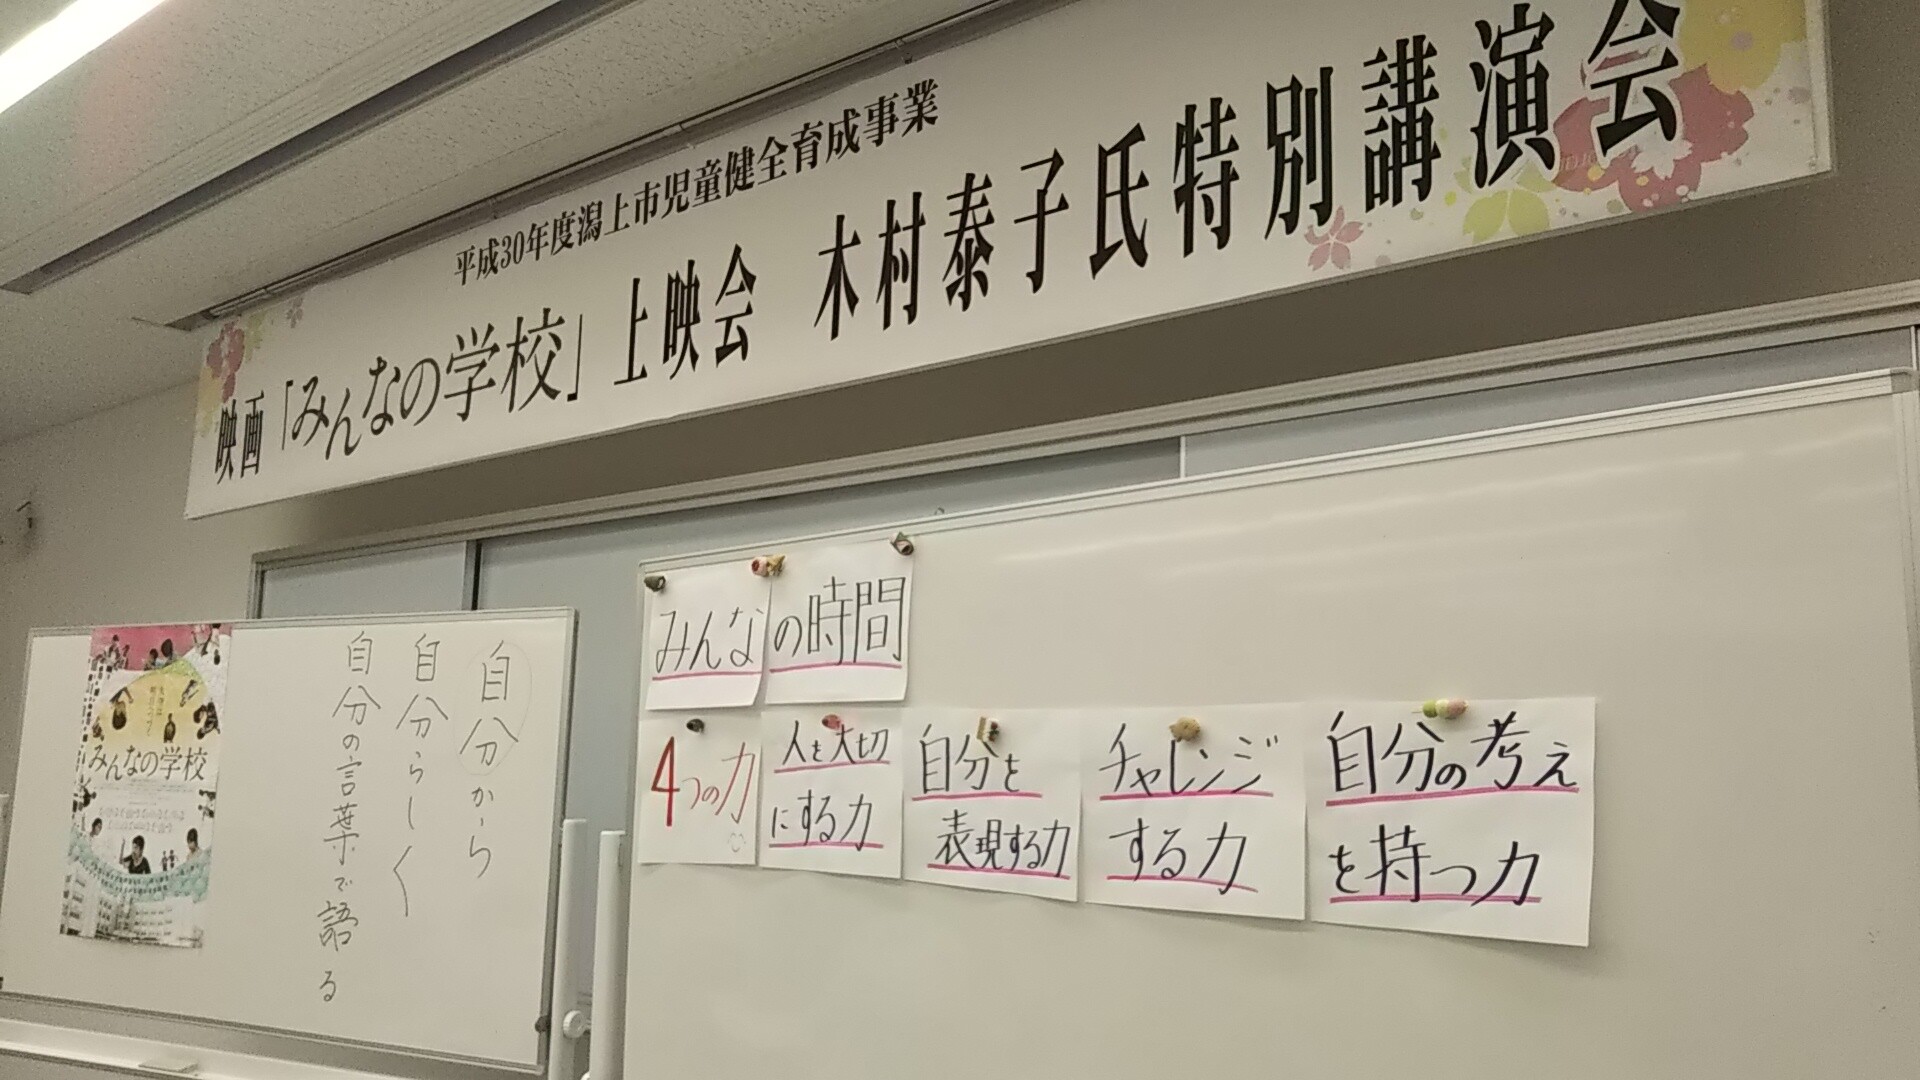 平成30年度潟上市児童健全育成事業
映画「みんなの学校」上映会 木村泰子氏特別講演会
みんなの時間
4つの力
人を大切
にする力
自分を
表現する力
チャレンジ
する力
自分の考え
を持つ力
自分から
自分らしく
自分の言葉で語る
みんなの学校